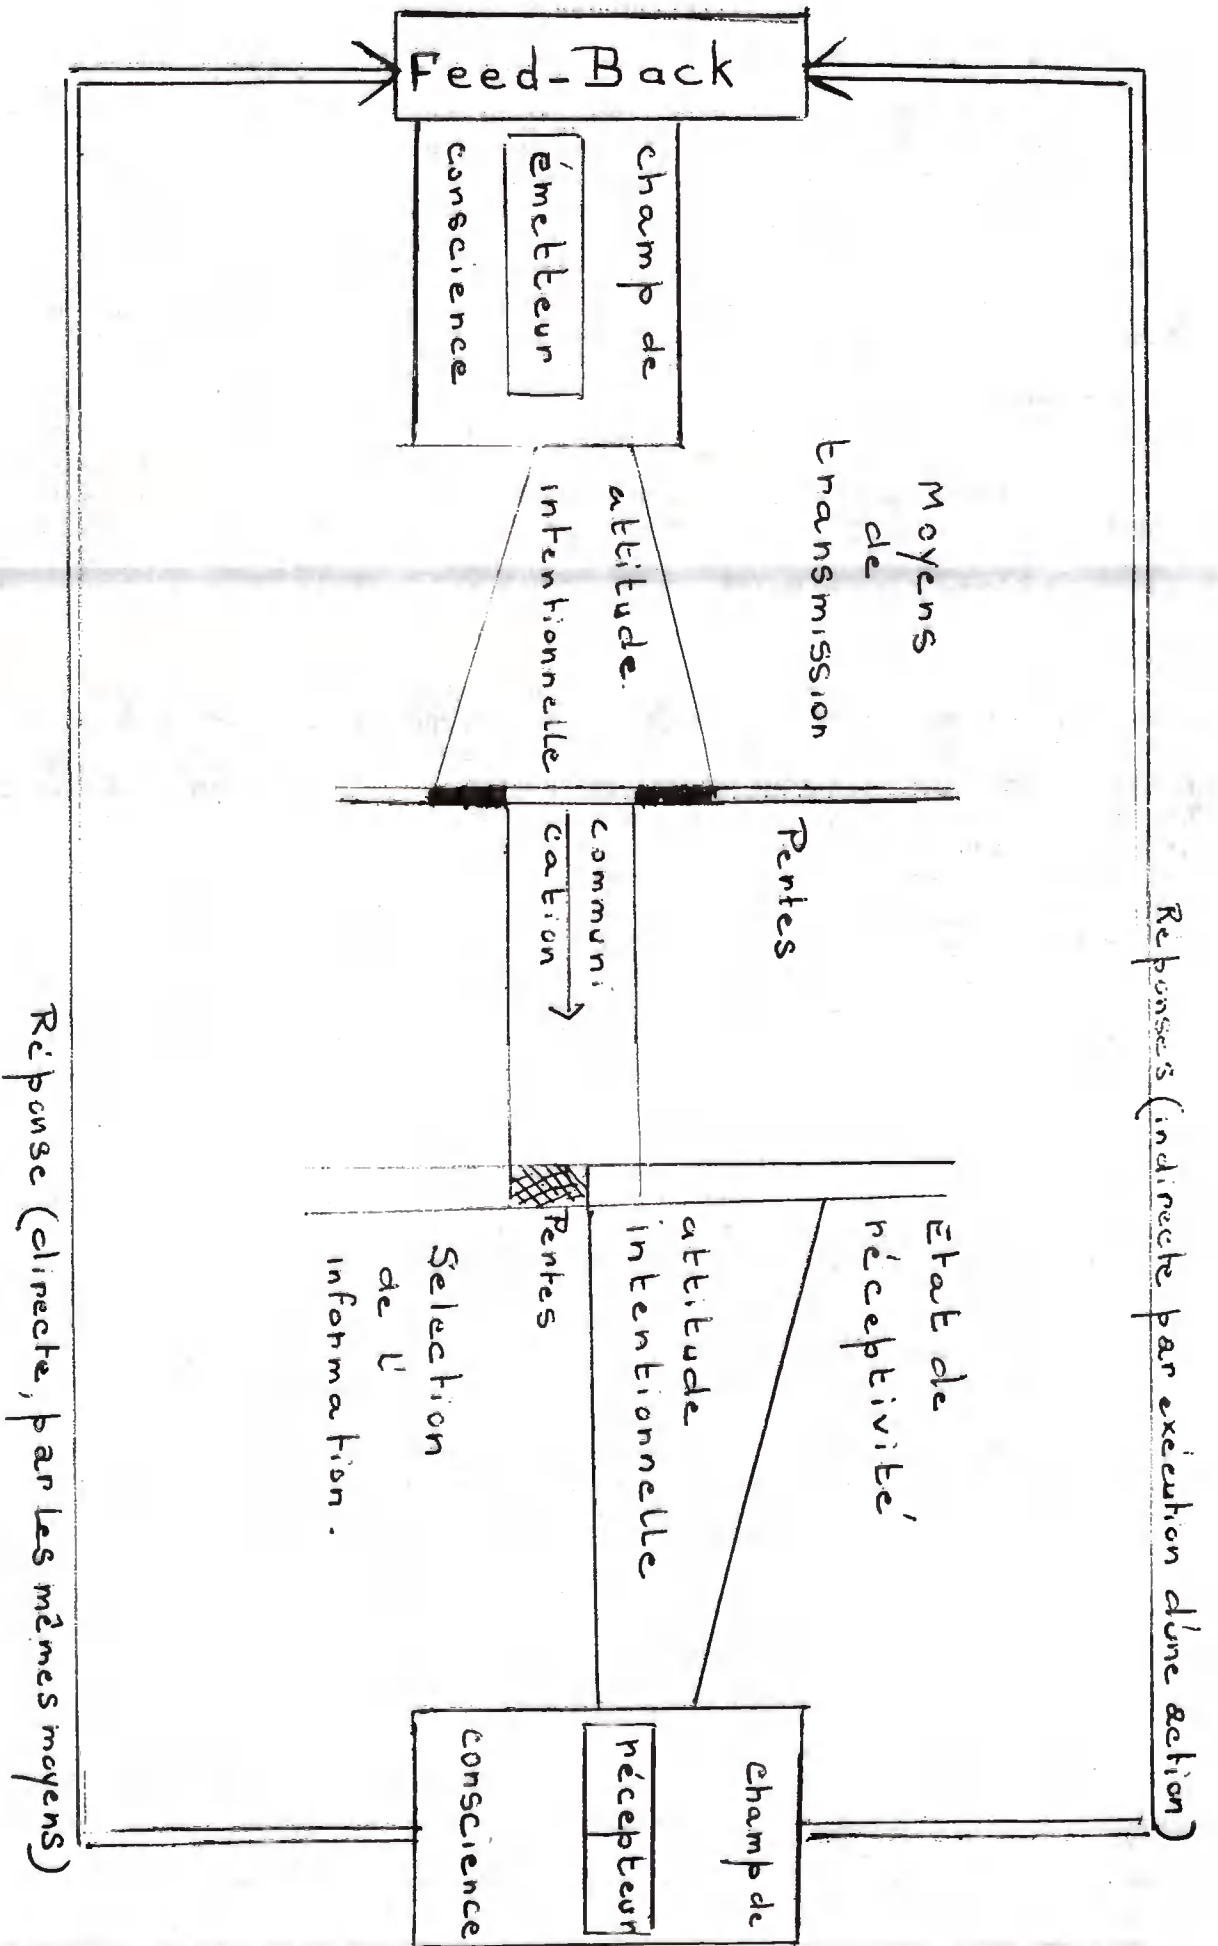 Feed-Back
champ de
émetteur
conscience
Moyens
de
transmission
attitude.
intentionnelle
Pertes
communi
cation
Etat de
réceptivité
attitude
intentionnelle
Pertes
Sélection
de l'
information.
champ de
récepteur
conscience
Réponses (indirecte par exécution d'une action)
Réponse (directe, par les mêmes moyens)